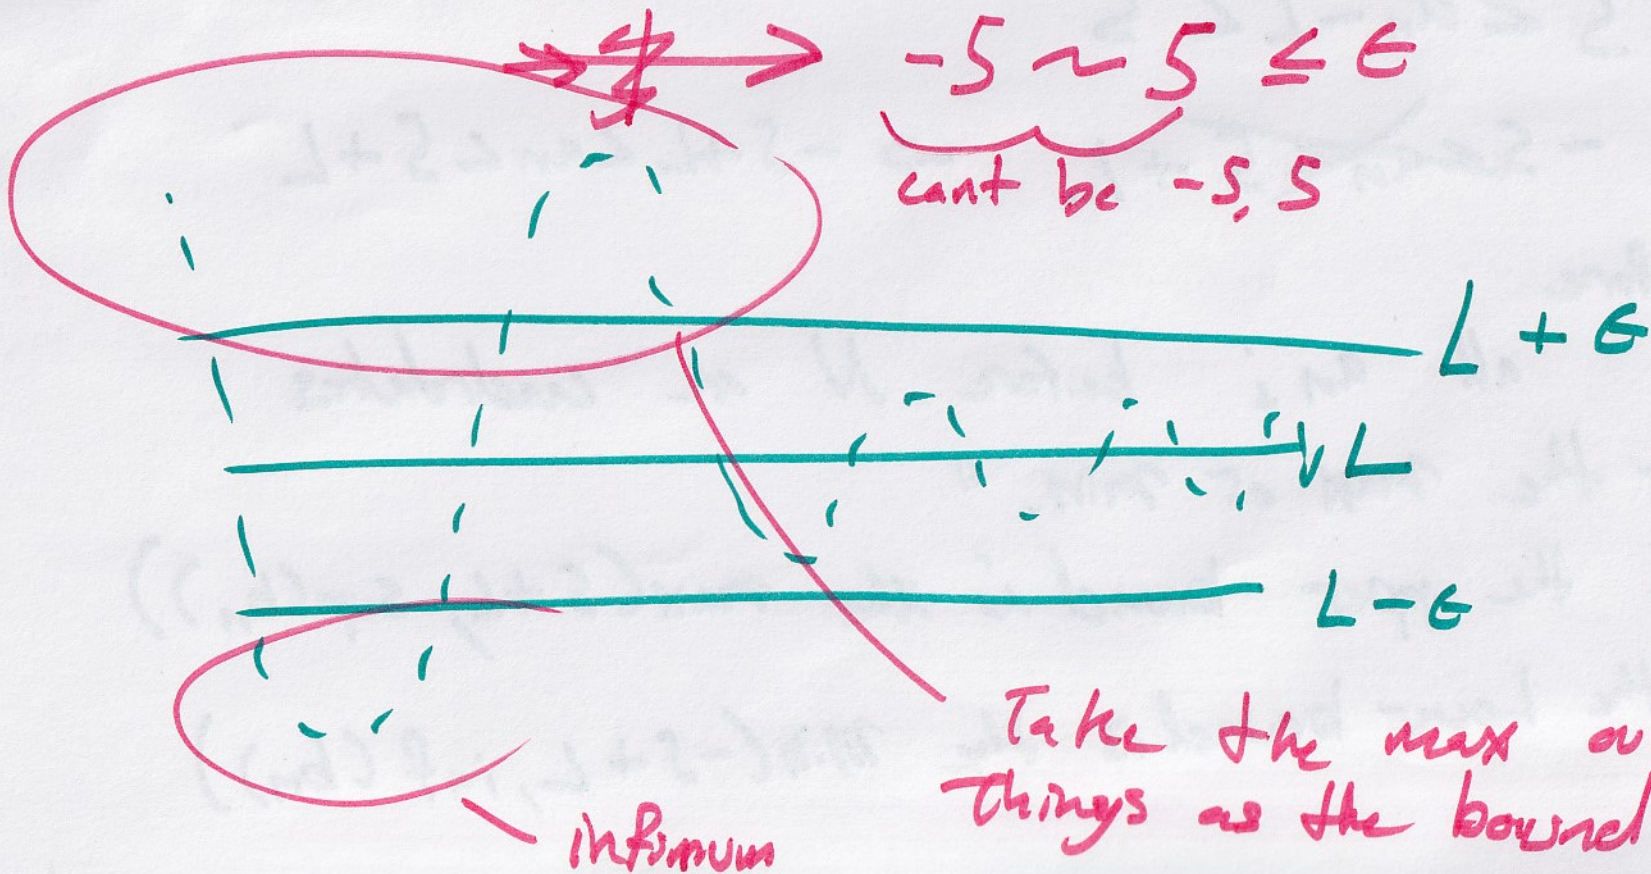 -5 ~ 5 ≤ ϵ
cant be -5, 5
L + ϵ
L
L - ϵ
Take the max
things as the bound
infimum